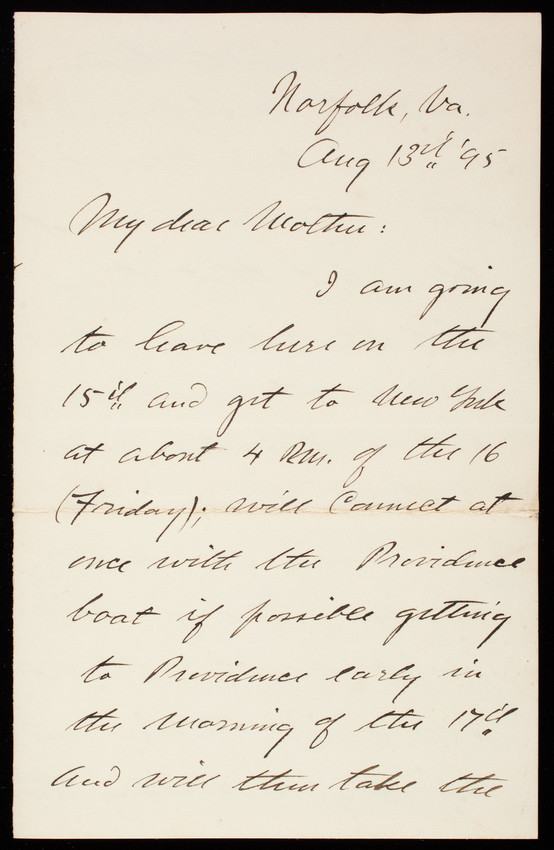 Norfolk, Va.
Aug 13th '95
My dear Mother:
I am going
to leave here on the
15th and get to New York
at about 4 P.M. of the 16
(Friday); will connect at
once with the Providence
boat if possible getting
to Providence early in
the morning of the 17th
and will then take the